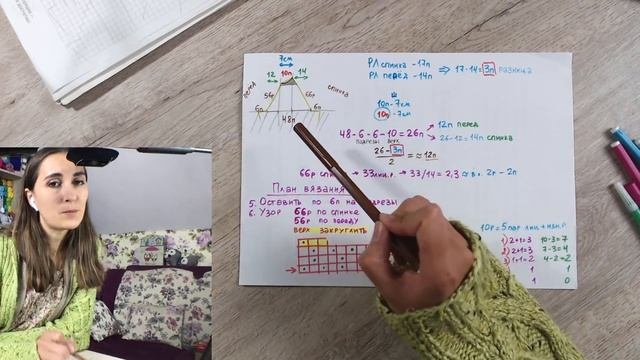 7см
12 10п 14
РЛ спинка - 17п
РЛ перёд - 14п
⇒ 17-14=3п разница
56р 66р
спинка
6п 6п
48п
10п - 7см
10п - 7см
48-6-6-10=26п
подрезы верх
12п перед
26-12=14п спинка
26-3п
2
=≈12п
66р спи → 33 лиц.р. → 33/14=2,3
2р - 2п
План вязания
5. Оставить по 6п на подрезы
6. Узор 66р по спинке
56р по переду
верх закруглить
10р = 5пар лиц + изн.р.
1) 2+1=3 10-3=7
2) 2+1=3 7-3=4
3) 1+1=2 4-2=2
1 1
1 0